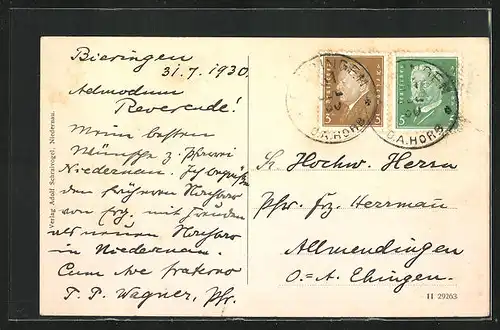 Bieringen
31.7.1930.
Admodum
Reverende!
Meine besten
Wünsche z. Pfarrei
Niedernau. Ich begrüße
den früheren Nachbar
von Erg. mit Freuden
als neuen Nachbar
in Niedernau.
Cum Ave fraterno
T. P. Wagner, Pfr.
Verlag Adolf Schraivogel, Niedernau.
INGEN
O.A.HORB
5 5
INGEN
O.A.HORB
5
Sr. Hochw. Herrn
Pfr. Frz. Herrman
Allmendingen
O.=A. Ehingen.
H 29263